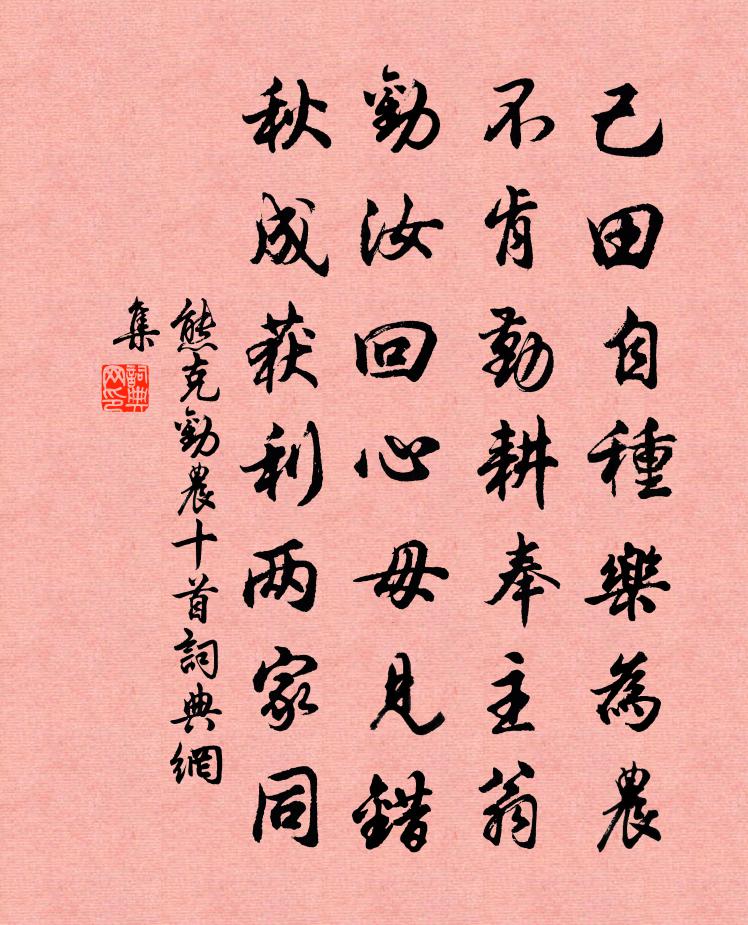 己田自種樂為農
不肯勤耕奉主翁
勸汝回心毋見錯
秋成获利两家同
熊克勸農十首詞典網
集
詞典
网印